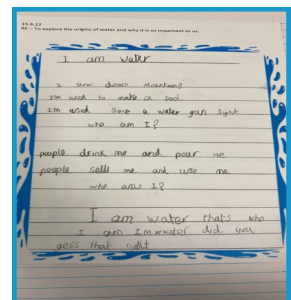 15.6.22
RE – To explore the origins of water and why it is so important to us.
I am water
I slow down mountains
I'm used to make a pool
I'm used for a water gun fight
who am I?
people drink me and pour me
people sell me and use me
who am I?
I am water thats who
I am I'm water did you
gess that right